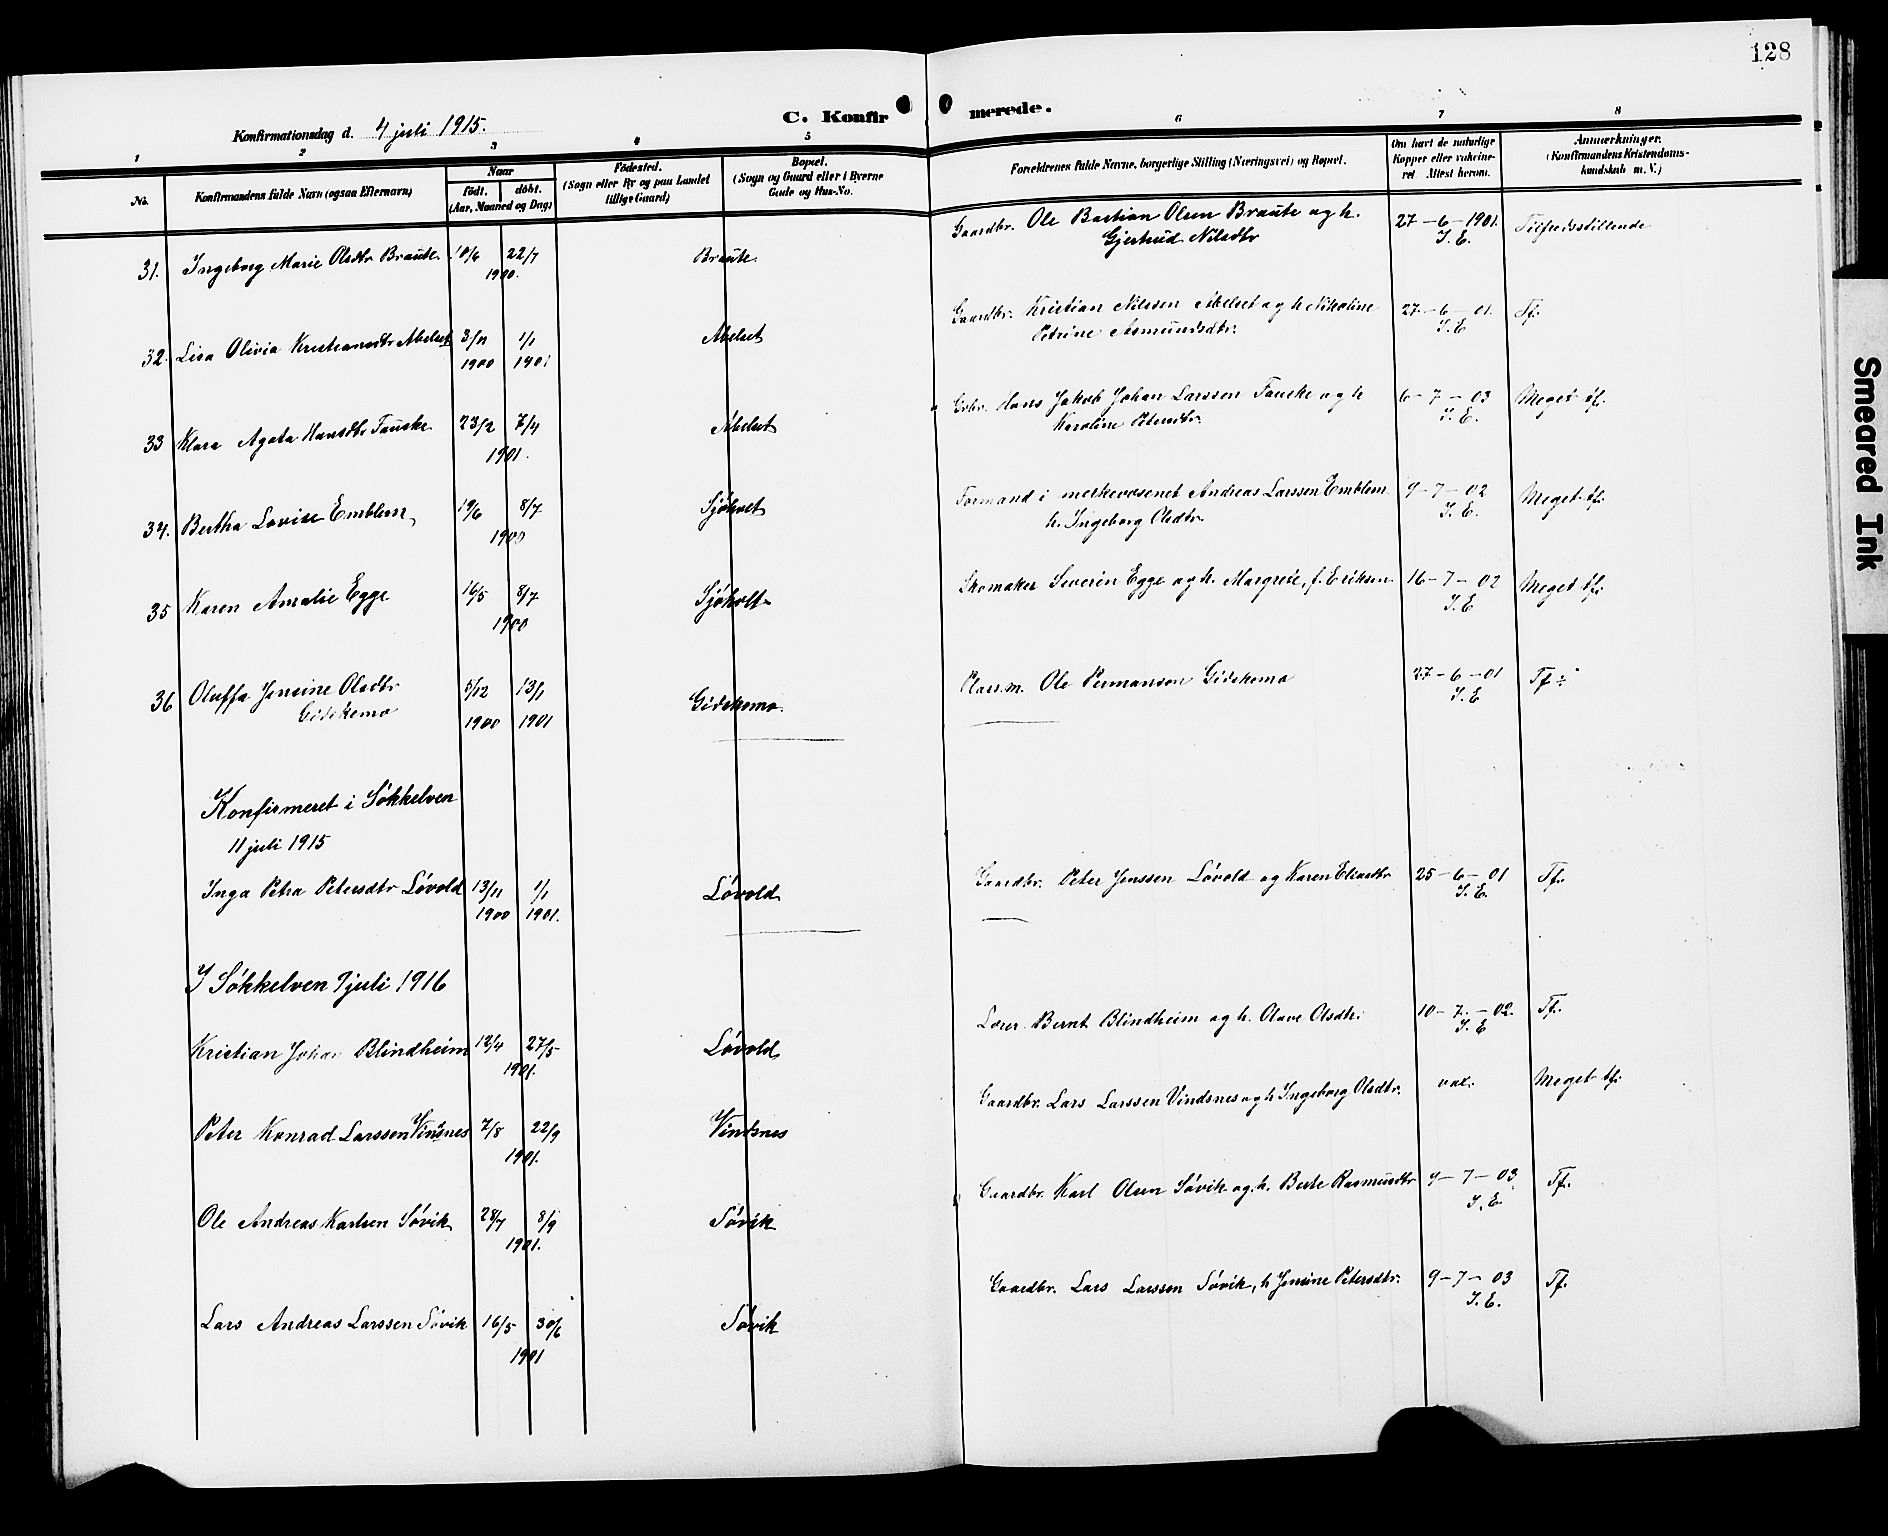 128
C. Konfirmerede.
Konfirmationsdag d. 4 juli 1915.
1 2 3 4 5 6 7 8
No. Konfirmandens fulde Navn (ogsaa Efternavn)
Naar
födt. döbt.
(Aar, Maaned og Dag)
Födested.
(Sogn eller By og paa Landet
tillige Gaard)
Bopæl.
(Sogn og Gaard eller i Byerne
Gade og Hus-No.
Forældrenes fulde Navne, borgerlige Stilling (Næringsvei) og Bopæl.
Om havt de naturlige
Kopper eller vakcine-
ret Attest herom.
Anmærkninger.
(Konfirmandens Kristendoms-
kundskab m. V.)
31. Ingeborg Marie Olsdtr Braute. 10/6 22/7 Braute. Gaardbr. Ole Bastian Olsen Braute og h. 27-6-1901. Tilfredsstillende
1900. Gjertrud Nilsdtr I. E.
32. Lisa Olivia Kristiansdtr Abelset 3/11 1/1 Abelset Gaardbr. Kristian Nilssen Abelset og h. Nikoline 27-6-01. Tf.
1900 1901 Petrine Asmundsdtr. I. E
33 Klara Agata Hansdtr Fauske. 23/2 7/4 Abelset Grbr. Hans Jakob Johan Larssen Fauske og h 6-7-03 Meget tf.
1901. Karoline Petersdtr. I. E.
34. Bertha Lovise Emblem, 19/6 8/7 Sjöholt Formand i merkevæsenet Andreas Larssen Emblem 9-7-02 Meget tf.
1900 h. Ingeborg Olsdtr. I. E.
35 Karen Amalie Egge 16/5 8/7 Sjöholt Skomaker Severin Egge og h. Margrete, f. Eriksen 16-7-02 Meget tf.
1900 I. E
36 Oluffa Jensine Olsdtr 5/12 13/1 Gidskemo. Plassm. Ole Permanson Gidskemo 27-6-01 Tf.
Gidskemo 1900 1901 I. E
Konfirmeret i Sökkelven
11 juli 1915
Inga Petra Petersdtr Lövold 13/11 1/1 Lövold Gaardbr. Peter Jenssen Lövold og Karen Eliasdtr 25-6-01 Tf.
1900 1901. I. E.
I Sökkelven 9 juli 1916
Kristian Johan Blindheim 12/4 27/5 Lövold Lærer Bernt Blindheim og h. Olave Olsdtr. 10-7-02. Tf.
1901. I. E
Peter Konrad Larssen Vindsnes 7/8 22/9 Vindsnes Gaardbr. Lars Larssen Vindsnes og h Ingeborg Olsdtr. vac. Meget tf.
1901.
Ole Andreas Karlsen Sövik 28/7 8/9 Sövik Gaardbr. Karl Olsen Sövik og h. Berte Rasmusdtr 9-7-03 Tf.
1901. I. E.
Lars Andreas Larssen Sövik 16/5 30/6 Sövik Gaardbr. Lars Larssen Sövik, h Jensine Petersdtr. 9-7-03 Tf.
1901 I. E.
Smeared Ink